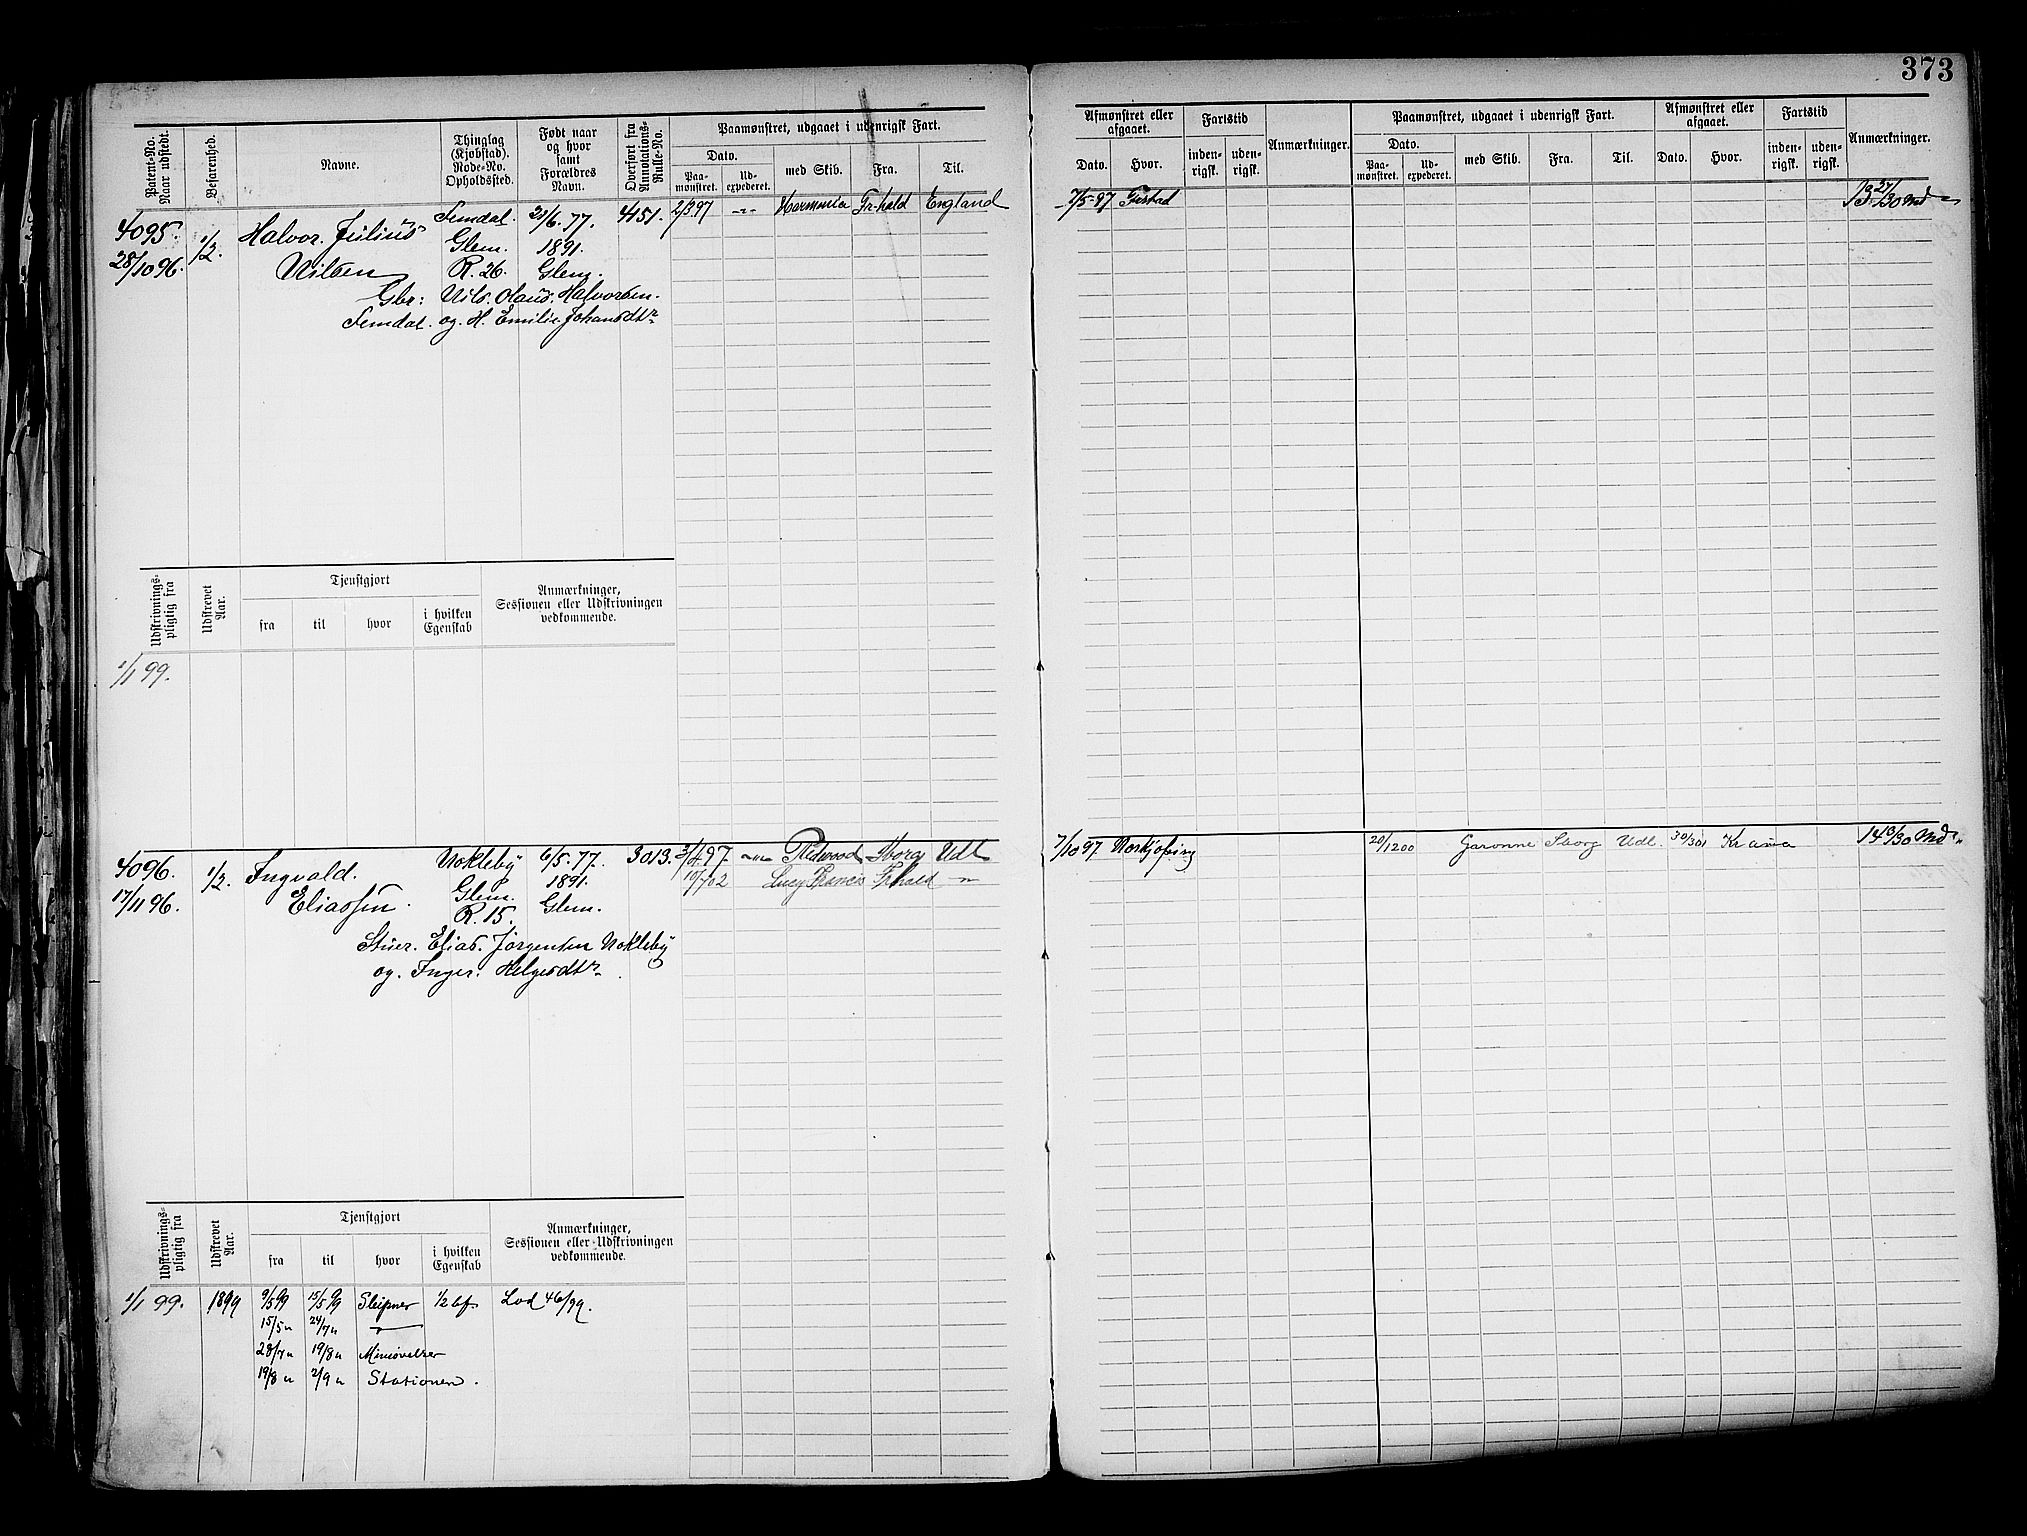 373
Patent-No. Naar udstedt.
Befarenhed.
Navne.
Thinglag (Kjøbstad). Rode-No. Opholdssted.
Født naar og hvor samt Forældres Navn.
Overført fra Annotations-Rulle-No.
Paamønstret, udgaaet i udenrigsk Fart.
Dato.
Paa-mønstret.
Ud-expederet.
med Skib.
Fra.
Til.
Afmønstret eller afgaaet.
Dato.
Hvor.
Fartstid
inden-rigsk.
uden-rigsk.
Anmærkninger.
Paamønstret, udgaaet i udenrigsk Fart.
Dato.
Paa-mønstret.
Ud-expederet.
med Skib.
Fra.
Til.
Afmønstret eller afgaaet.
Dato.
Hvor.
Fartstid
inden-rigsk.
uden-rigsk.
Anmærkninger.
4095. 1/2. Halvor Julius Femdal. 6. 77. 4151. 2/3 97 -"- Fr-hald England 7/5-97 13 27/30 Md
28/10 96. Nilsen Glem. 1891.
R. 26. Glem.
Gbr: Nils Olaus Halvorsen
Femdal. og H. Emilie Johansdtr
Udskrivnings-pligtig fra
Udskrevet Aar.
Tjenstgjort
fra
til
hvor
i hvilken Egenskab
Anmærkninger, Sessionen eller Udskrivningen vedkommende.
1/1 99.
4096. 1/2. Ingvald Nokleby 6/5. 77. 3013. 3/4 97 -"- Redwood Sborg Udl 7/10 97 Norkjøping 20/12 00 Garonne Sborg Udl. 30/3 01 Kr ania 14 0/30 Md
17/11 96. Eliassen. Glem. 1891. 10/7 02 Lucy Francis Frhald -"-
R. 15. Glem.
Stuer. Elias Jørgensen Nokleby
og Inger Helgesdtr
Udskrivnings-pligtig fra
Udskrevet Aar.
Tjenstgjort
fra
til
hvor
i hvilken Egenskab
Anmærkninger, Sessionen eller Udskrivningen vedkommende.
1/1 99. 1899 9/5 99 15/5 99 Sleipner 1/2 bf. Lod 46/99.
15/5 " 24/7 " —
28/7 " 19/8 " Mineøvelser
19/8 " 2/9 " Stationen.